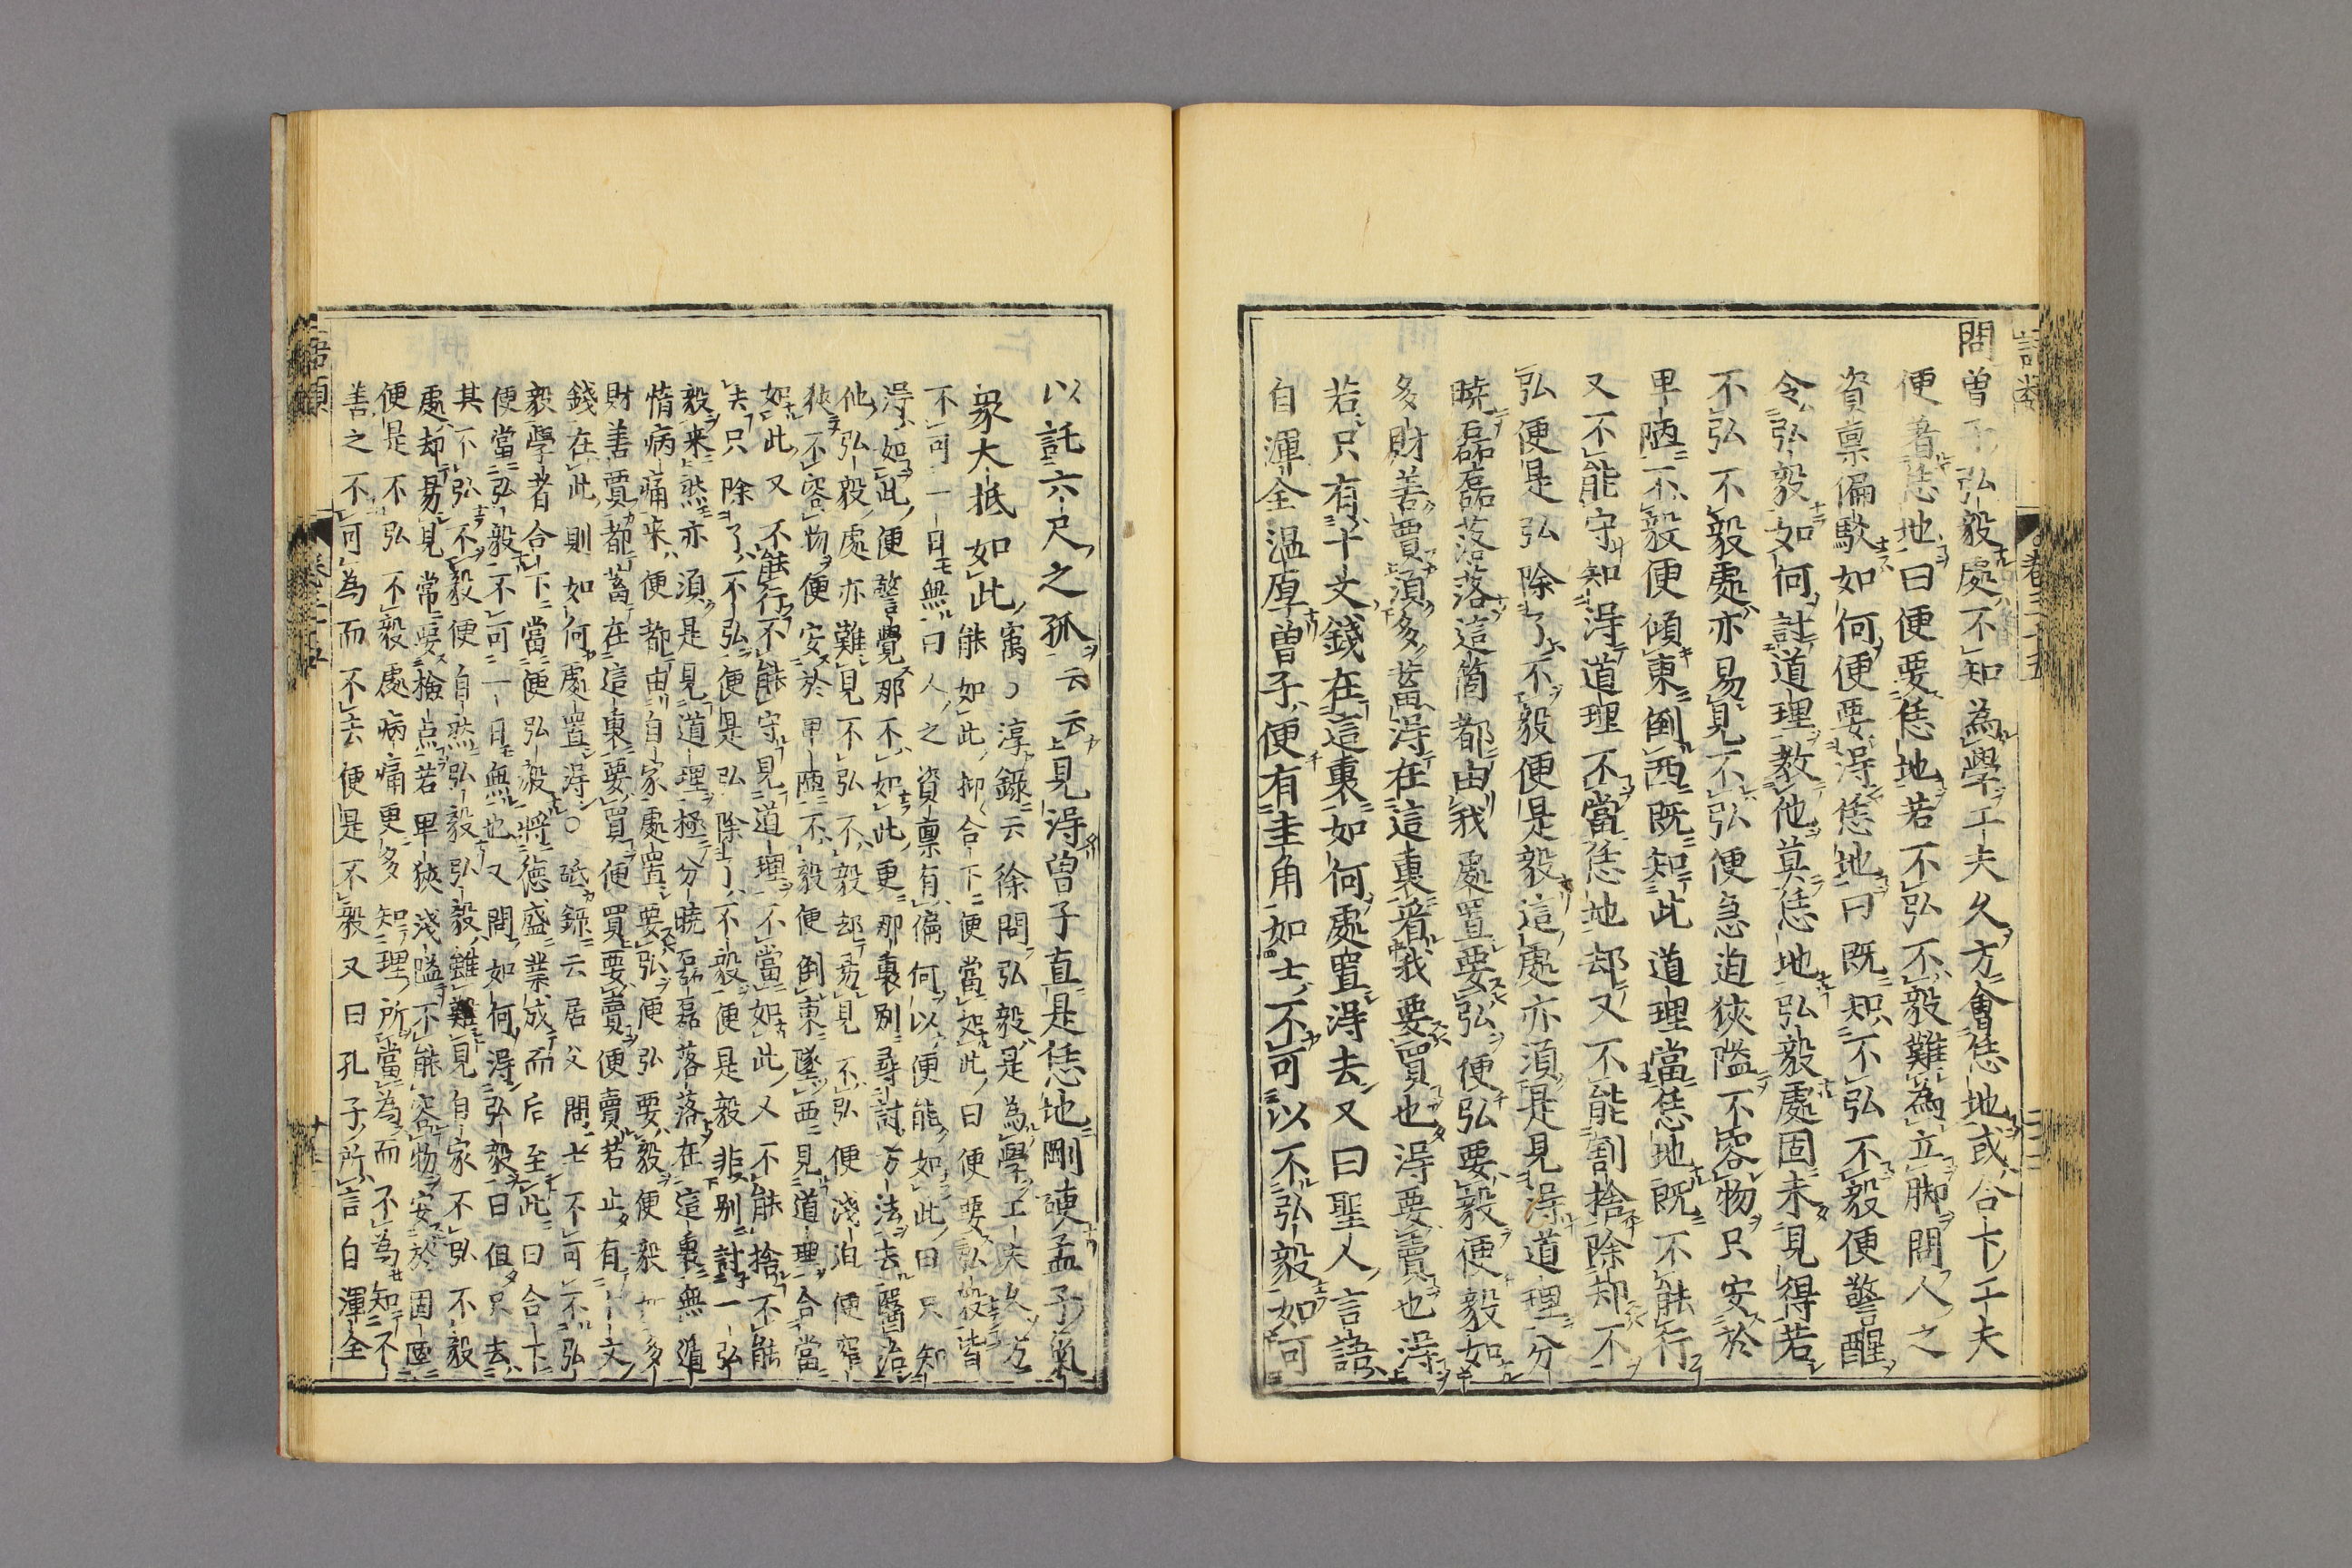 問曾子弘毅處不知為學工夫久方會恁地或合下工夫
便着恁地曰便要恁地若不弘不毅難為立脚問人之
資禀偏駁如何便要得恁地曰既知不弘不毅便警醒
令弘毅如何討道理教他莫恁地弘毅處固未見得若
不弘不毅處亦易見不弘便急迫狹隘不容物只安於
卑陋不毅便傾東倒西既知此道理當恁地既不能行
又不能守知得道理不當恁地却又不能割捨除却不
弘便是弘除了不毅便是毅這處亦須是見得道理分
曉磊磊落落這箇都由我處置要弘便弘要毅便毅如
多財善賈須多蓄得在這裏着我要買也得要賣也得
若只有十文錢在這裏如何處置得去又曰聖人言語
自渾全温厚曽子便有圭角如士不可以不弘毅如可
以託六尺之孤云云見得曽子直是恁地剛硬孟子氣
象大抵如此㝢○淳錄云徐問弘毅是為學工夫久方
能如此抑合下便當如此曰便要弘毅皆
不可一日無曰人之資禀有偏何以便能如此曰只知
得如此便警覺那不如此更那裏別尋討方法去醫治
他弘毅處亦難見不弘不毅却易見不弘便淺迫便窄
狹不容物便安於卑陋不毅便倒東墜西見道理合當
如此又不能行不能守見道理不當如此又不能捨不能
去只除了不弘便是弘除了不毅便是毅非別討一弘
毅來然亦須是見道理極分曉磊磊落落在這裏無遁
惰病痛来便都由自家處置要弘便弘要毅便毅如多
財善賈都蓄在這裏要買便買要賣便賣若止有十文
錢在此則如何處置得○砥錄云居父問士不可不弘
毅學者合下當便弘毅將德盛業成而后至此曰合下
便當弘毅不可一日無也又問如何得弘毅曰但只去
其不弘不毅便自然弘毅弘毅雖難見自家不弘不毅
處却易見常要檢点若卑狹淺隘不能容物安於固陋
便是不弘不毅處病痛更多知理所當為而不為知不
善之不可為而不去便是不毅又曰孔子所言自渾全